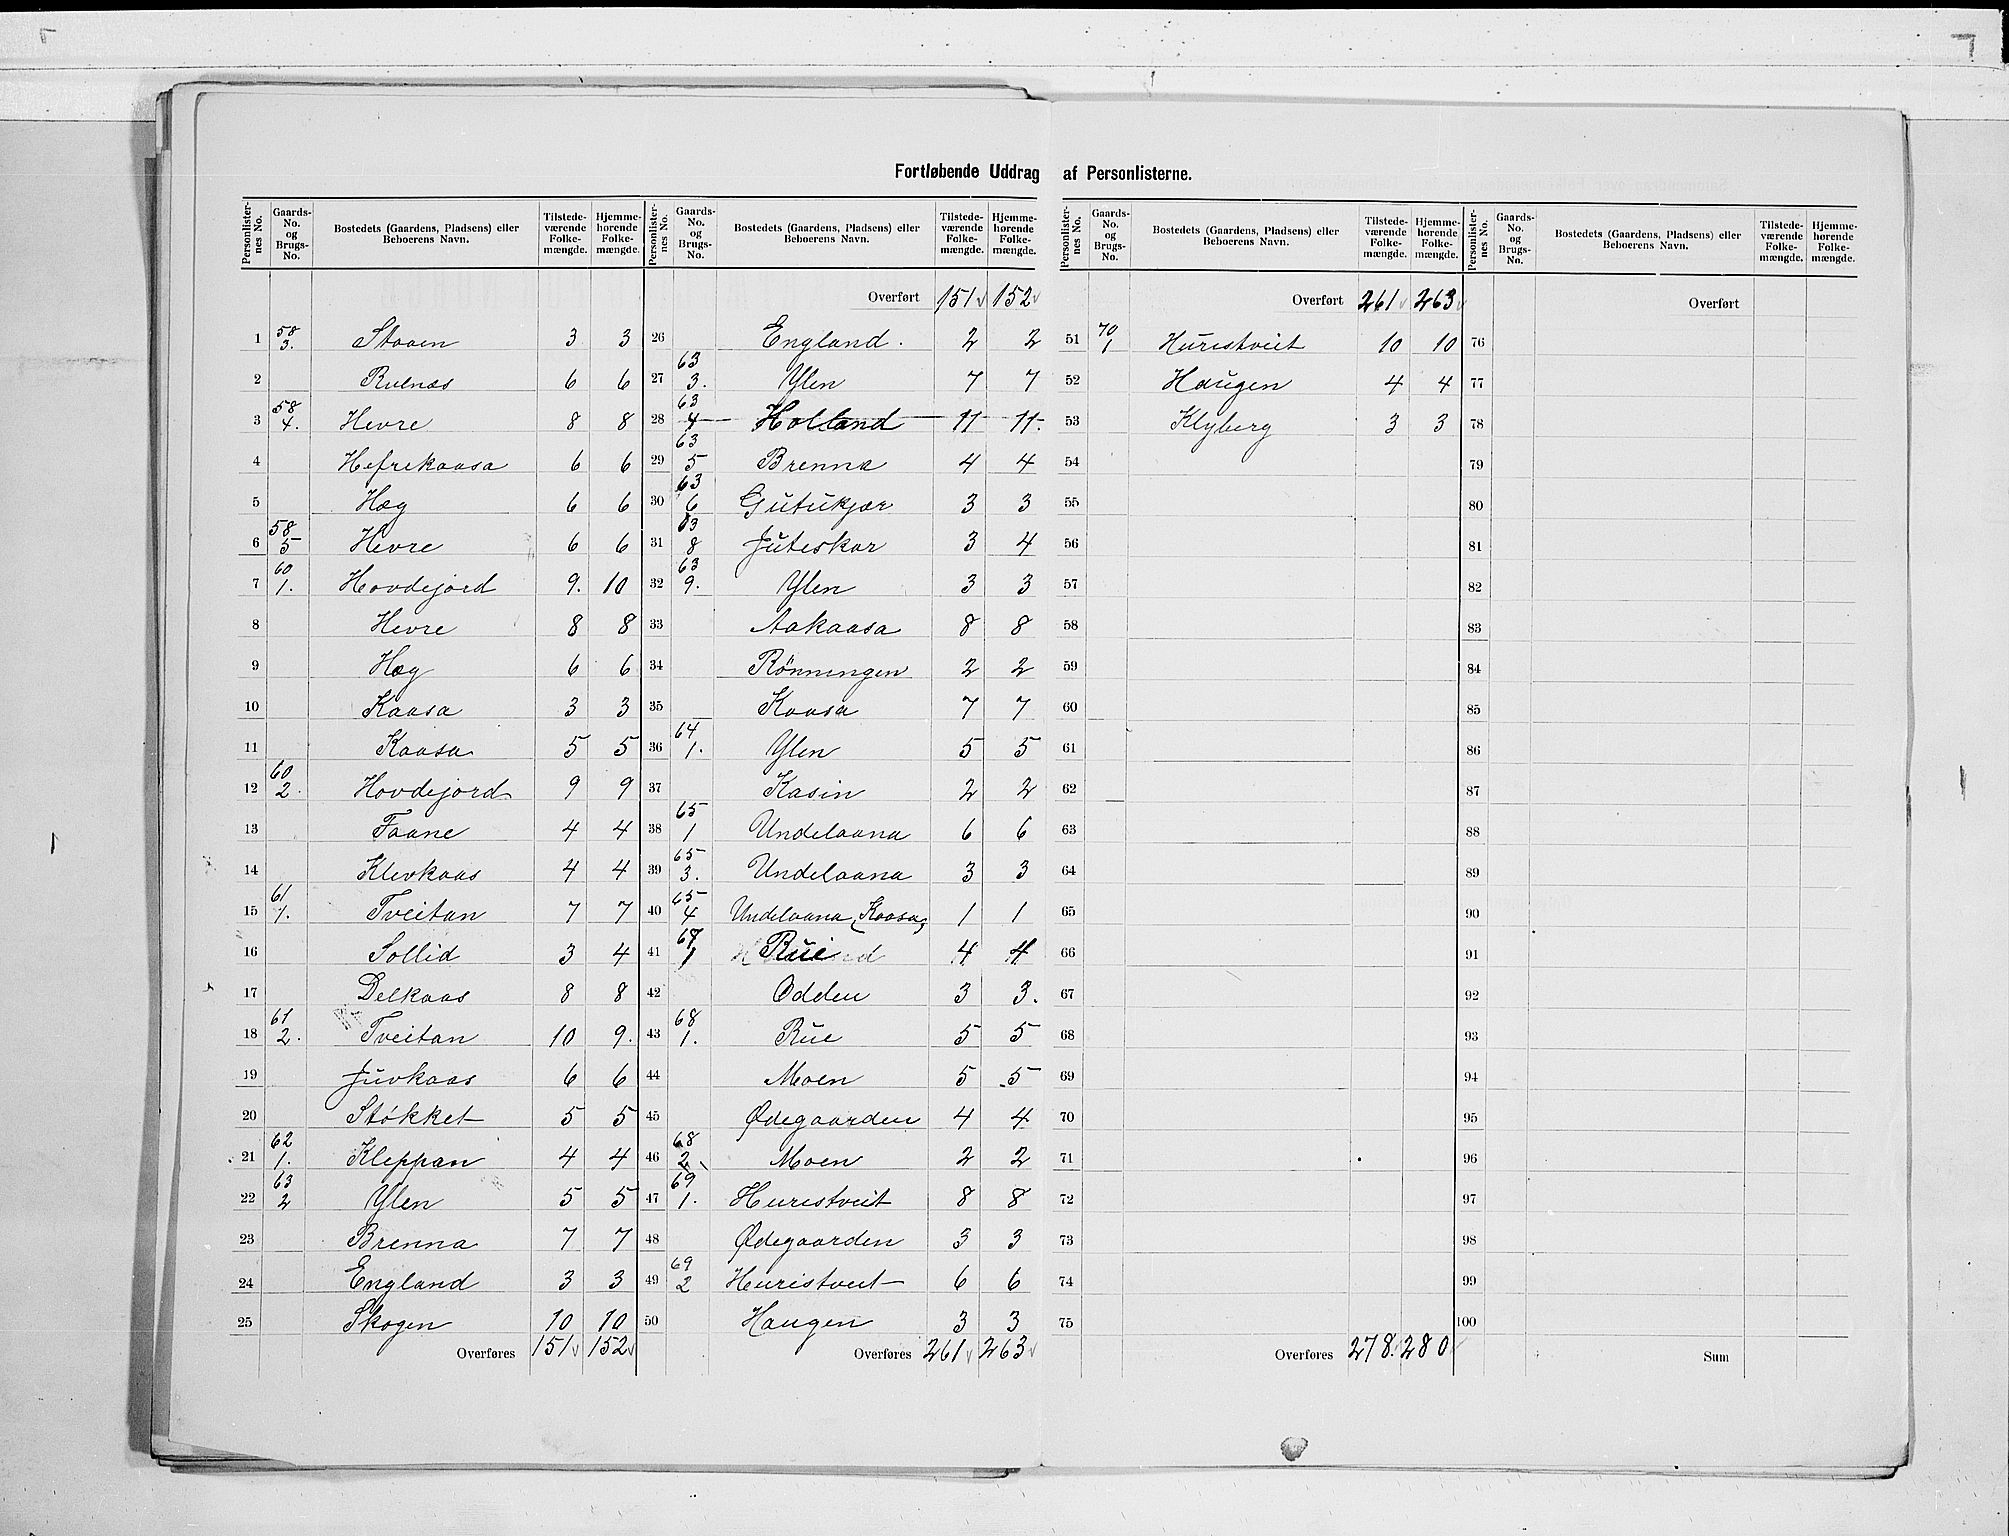 Fortløbende Uddrag af Personlisterne.
Personlister-nes No. | Gaards-No. og Brugs-No. | Bostedets (Gaardens, Pladsens) eller Beboerens Navn. | Tilstede-værende Folke-mængde. | Hjemme-hørende Folke-mængde.
1 58/3. Staaen 3 3
2 Ruenæs 6 6
3 58/4. Hevre 8 8
4 Hefrekaasa 6 6
5 Hæg 6 6
6 58/5 Hevre 6 6
7 60/1. Hovdejord 9. 10
8 Hevre 8 8
9 Hæg 6 6
10 Kaasa 3 3
11 Kaasa 5 5
12 60/2. Hovdejord 9 9
13 Faane 4 4
14 Klevkaas 4 4
15 61/1. Tveitan 7 7
16 Sollid 3 4
17 Delkaas 8 8
18 61/2. Tveitan 10 9.
19 Juvkaas 6 6
20 Stökket 5 5
21 62/1. Kleppan 4 4
22 63/2 Ylen 5 5
23 Brenna 7 7
24 England 3 3
25 Skogen 10 10
Overføres 151 152
Personlister-nes No. | Gaards-No. og Brugs-No. | Bostedets (Gaardens, Pladsens) eller Beboerens Navn. | Tilstede-værende Folke-mængde. | Hjemme-hørende Folke-mængde.
Overført 151 152
26 England. 2 2
27 63/3. Ylen 7 7
28 63/4 Holland 11 11.
29 63/5 Brenna 4 4
30 63/6 Gutukjær 3 3
31 63/8 Juteskar 3 4
32 63/9. Ylen 3 3
33 Aakaasa 8 8
34 Rönningen 2 2
35 Kaasa 7 7
36 64/1. Ylen 5 5
37 Kasin 2 2
38 65/1 Undelaana 6 6
39 65/3. Undelaana 3 3
40 65/4 Undelaana (Kaasa) 1 1
41 67/1 Rui 4 4
42 Odden 3 3.
43 68/1. Rue 5 5
44 Moen 5 5
45 Ødegaarden 4 4
46 68/2 Moen 2 2
47 69/1. Hurestveit 8 8
48 Ødegaarden 3 3
49 69/2 Huristveit 6 6
50 Haugen 3 3
Overføres 261 263
Personlister-nes No. | Gaards-No. og Brugs-No. | Bostedets (Gaardens, Pladsens) eller Beboerens Navn. | Tilstede-værende Folke-mængde. | Hjemme-hørende Folke-mængde.
Overført 261 263
51 70/1 Hurestveit 10 10
52 Haugen 4 4
53 Klyberg 3 3
54
55
56
57
58
59
60
61
62
63
64
65
66
67
68
69
70
71
72
73
74
75
Overføres 278. 280
Personlister-nes No. | Gaards-No. og Brugs-No. | Bostedets (Gaardens, Pladsens) eller Beboerens Navn. | Tilstede-værende Folke-mængde. | Hjemme-hørende Folke-mængde.
Overført
76
77
78
79
80
81
82
83
84
85
86
87
88
89
90
91
92
93
94
95
96
97
98
99
100
Sum